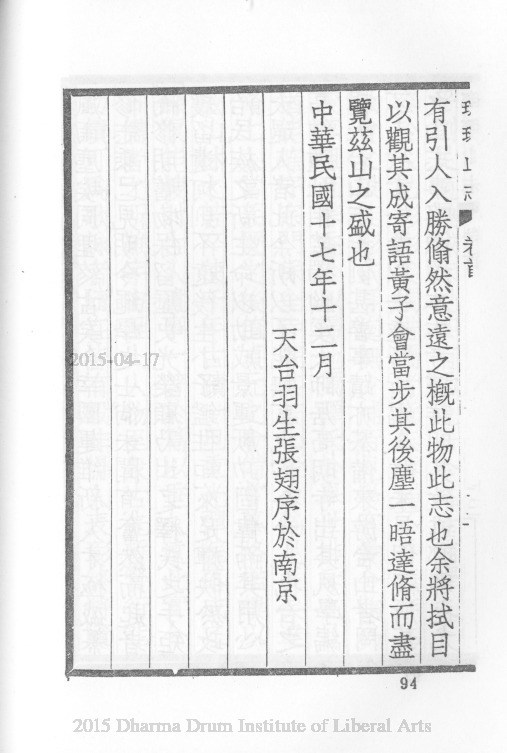 琅琊山志 卷首
有引人入勝翛然意遠之槪此物此志也余將拭目
以觀其成寄語黃子會當步其後塵一晤達脩而盡
覽茲山之盛也
中華民國十七年十二月
天台羽生張翅序於南京
2015-04-17
94
2015 Dharma Drum Institute of Liberal Arts